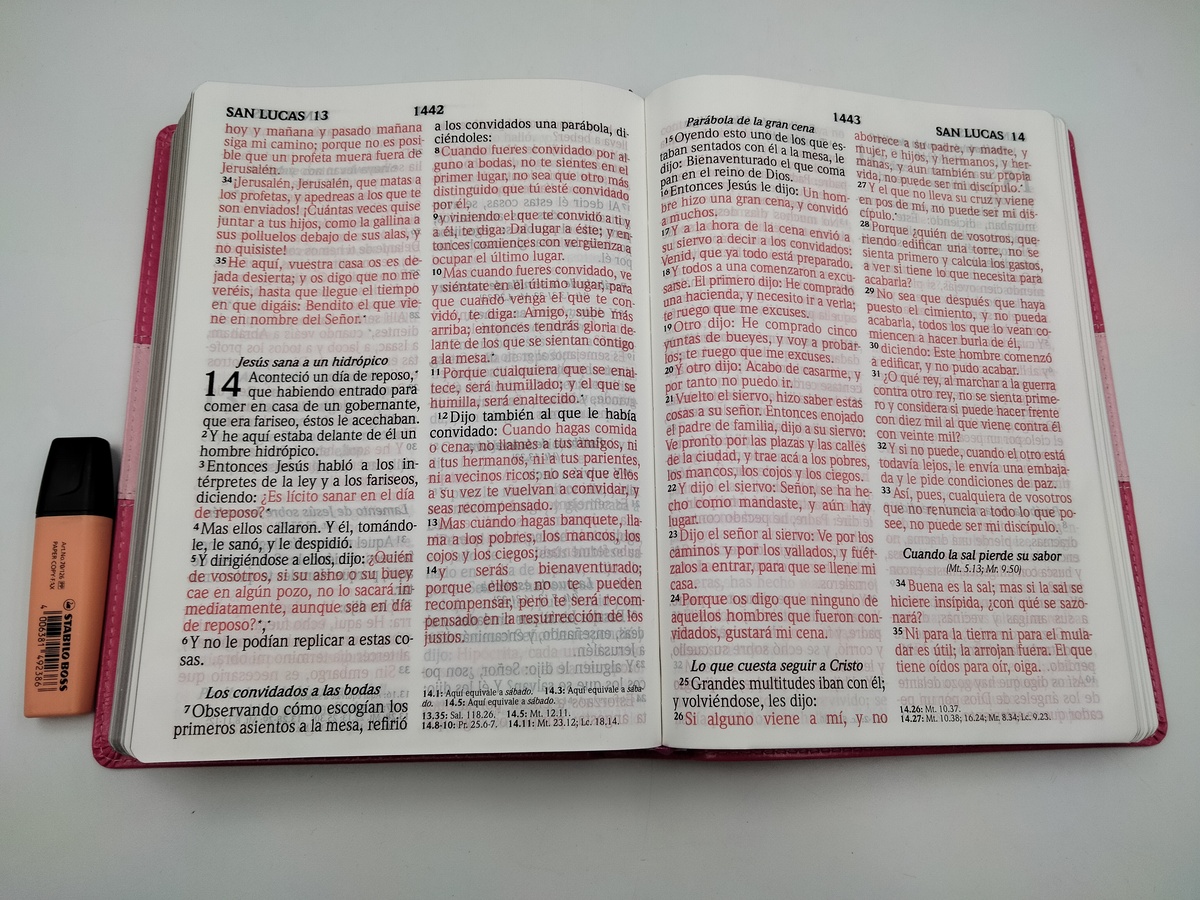 SAN LUCAS 13
1442
hoy y mañana y pasado mañana
siga mi camino; porque no es posi-
ble que un profeta muera fuera de
Jerusalén.
34 ¡Jerusalén, Jerusalén, que matas a
los profetas, y apedreas a los que te
son enviados! ¡Cuántas veces quise
juntar a tus hijos, como la gallina a
sus polluelos debajo de sus alas, y
no quisiste!
35 He aquí, vuestra casa os es de-
jada desierta; y os digo que no me
veréis, hasta que llegue el tiempo
en que digáis: Bendito el que vie-
ne en nombre del Señor.*
Jesús sana a un hidrópico
14 Aconteció un día de reposo,*
que habiendo entrado para
comer en casa de un gobernante,
que era fariseo, éstos le acechaban.
2 Y he aquí estaba delante de él un
hombre hidrópico.
3 Entonces Jesús habló a los in-
térpretes de la ley y a los fariseos,
diciendo: ¿Es lícito sanar en el día
de reposo?*
4 Mas ellos callaron. Y él, tomándo-
le, le sanó, y le despidió.
5 Y dirigiéndose a ellos, dijo: ¿Quién
de vosotros, si su asno o su buey
cae en algún pozo, no lo sacará in-
mediatamente, aunque sea en día
de reposo?*,*
6 Y no le podían replicar a estas co-
sas.
Los convidados a las bodas
7 Observando cómo escogían los
primeros asientos a la mesa, refirió
a los convidados una parábola, di-
ciéndoles:
8 Cuando fueres convidado por al-
guno a bodas, no te sientes en el
primer lugar, no sea que otro más
distinguido que tú esté convidado
por él,
9 y viniendo el que te convidó a ti y
a él, te diga: Da lugar a éste; y en-
tonces comiences con vergüenza a
ocupar el último lugar.
10 Mas cuando fueres convidado, ve
y siéntate en el último lugar, para
que cuando venga el que te con-
vidó, te diga: Amigo, sube más
arriba; entonces tendrás gloria de-
lante de los que se sientan contigo
a la mesa.*
11 Porque cualquiera que se enal-
tece, será humillado; y el que se
humilla, será enaltecido.*
12 Dijo también al que le había
convidado: Cuando hagas comida
o cena, no llames a tus amigos, ni
a tus hermanos, ni a tus parientes,
ni a vecinos ricos; no sea que ellos
a su vez te vuelvan a convidar, y
seas recompensado.
13 Mas cuando hagas banquete, lla-
ma a los pobres, los mancos, los
cojos y los ciegos;
14 y serás bienaventurado;
porque ellos no te pueden
recompensar, pero te será recom-
pensado en la resurrección de los
justos.
14.1: Aquí equivale a sábado. 14.3: Aquí equivale a sába-
do. 14.5: Aquí equivale a sábado.
13.35: Sal. 118.26. 14.5: Mt. 12.11.
14.8-10: Pr. 25.6-7. 14.11: Mt. 23.12; Lc. 18.14.
1443
SAN LUCAS 14
Parábola de la gran cena
15 Oyendo esto uno de los que es-
taban sentados con él a la mesa, le
dijo: Bienaventurado el que coma
pan en el reino de Dios.
16 Entonces Jesús le dijo: Un hom-
bre hizo una gran cena, y convidó
a muchos.
17 Y a la hora de la cena envió a
su siervo a decir a los convidados:
Venid, que ya todo está preparado.
18 Y todos a una comenzaron a excu-
sarse. El primero dijo: He comprado
una hacienda, y necesito ir a verla;
te ruego que me excuses.
19 Otro dijo: He comprado cinco
yuntas de bueyes, y voy a probar-
los; te ruego que me excuses.
20 Y otro dijo: Acabo de casarme, y
por tanto no puedo ir.
21 Vuelto el siervo, hizo saber estas
cosas a su señor. Entonces enojado
el padre de familia, dijo a su siervo:
Ve pronto por las plazas y las calles
de la ciudad, y trae acá a los pobres,
los mancos, los cojos y los ciegos.
22 Y dijo el siervo: Señor, se ha he-
cho como mandaste, y aún hay
lugar.
23 Dijo el señor al siervo: Ve por los
caminos y por los vallados, y fuér-
zalos a entrar, para que se llene mi
casa.
24 Porque os digo que ninguno de
aquellos hombres que fueron con-
vidados, gustará mi cena.
Lo que cuesta seguir a Cristo
25 Grandes multitudes iban con él;
y volviéndose, les dijo:
26 Si alguno viene a mí, y no
aborrece a su padre, y madre, y
mujer, e hijos, y hermanos, y her-
manas, y aun también su propia
vida, no puede ser mi discípulo.*
27 Y el que no lleva su cruz y viene
en pos de mí, no puede ser mi dis-
cípulo.*
28 Porque ¿quién de vosotros, que-
riendo edificar una torre, no se
sienta primero y calcula los gastos,
a ver si tiene lo que necesita para
acabarla?
29 No sea que después que haya
puesto el cimiento, y no pueda
acabarla, todos los que lo vean co-
miencen a hacer burla de él,
30 diciendo: Este hombre comenzó
a edificar, y no pudo acabar.
31 ¿O qué rey, al marchar a la guerra
contra otro rey, no se sienta prime-
ro y considera si puede hacer frente
con diez mil al que viene contra él
con veinte mil?
32 Y si no puede, cuando el otro está
todavía lejos, le envía una embaja-
da y le pide condiciones de paz.
33 Así, pues, cualquiera de vosotros
que no renuncia a todo lo que po-
see, no puede ser mi discípulo.
Cuando la sal pierde su sabor
(Mt. 5.13; Mr. 9.50)
34 Buena es la sal; mas si la sal se
hiciere insípida, ¿con qué se sazo-
nará?
35 Ni para la tierra ni para el mula-
dar es útil; la arrojan fuera. El que
tiene oídos para oír, oiga.
14.26: Mt. 10.37.
14.27: Mt. 10.38; 16.24; Mr. 8.34; Lc. 9.23.
STABILO BOSS
Art.No.70/126
PAPER-COPY-FAX
4 006381 492386